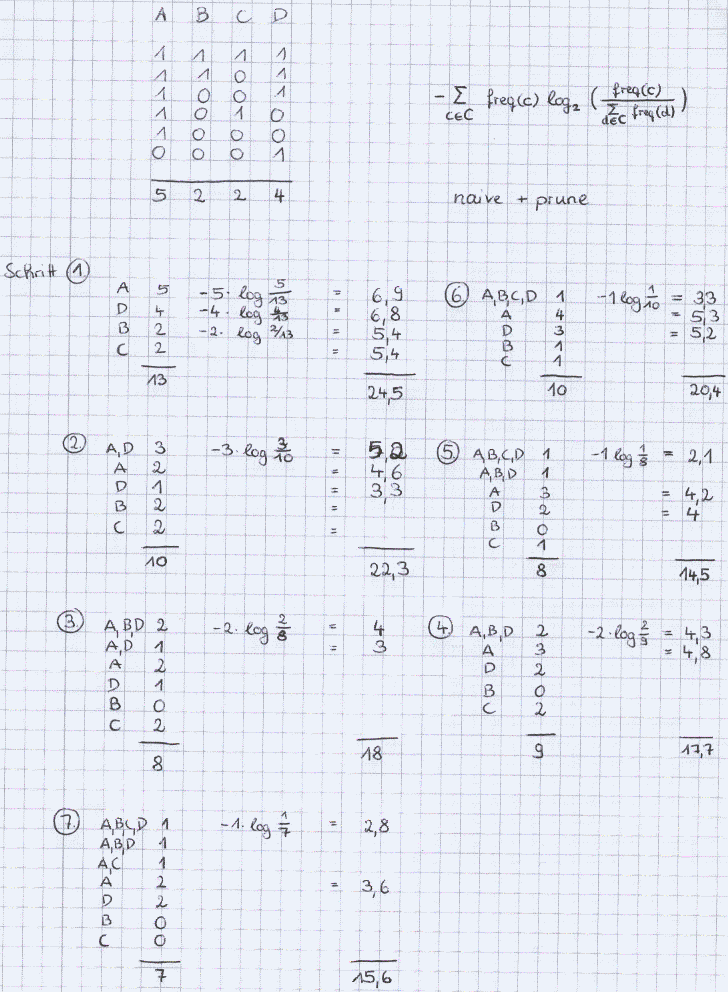 A B C D
1 1 1 1
1 1 0 1
1 0 0 1
1 0 1 0
1 0 0 0
0 0 0 1
5 2 2 4
- ∑ c∈C freq(c) log₂ ( freq(c) / ∑ d∈C freq(d) )
naive + prune
Schritt ①
A 5 -5 · log 5/13 = 6,9
D 4 -4 · log 4/13 = 6,8
B 2 -2 · log 2/13 = 5,4
C 2 = 5,4
13 24,5
② A,D 3 -3 · log 3/10 = 5,2
A 2 = 4,6
D 1 = 3,3
B 2 =
C 2 =
10 22,3
③ A,B,D 2 -2 · log 2/8 = 4
A,D 1 = 3
A 2
D 1
B 0
C 2
8 18
⑦ A,B,C,D 1 -1 · log 1/7 = 2,8
A,B,D 1
A,C 1
A 2 = 3,6
D 2
B 0
C 0
7 15,6
⑥ A,B,C,D 1 -1 log 1/10 = 3,3
A 4 = 5,3
D 3 = 5,2
B 1
C 1
10 20,4
⑤ A,B,C,D 1 -1 log 1/8 = 2,1
A,B,D 1
A 3 = 4,2
D 2 = 4
B 0
C 1
8 14,5
④ A,B,D 2 -2 · log 2/9 = 4,3
A 3 = 4,8
D 2
B 0
C 2
9 17,7